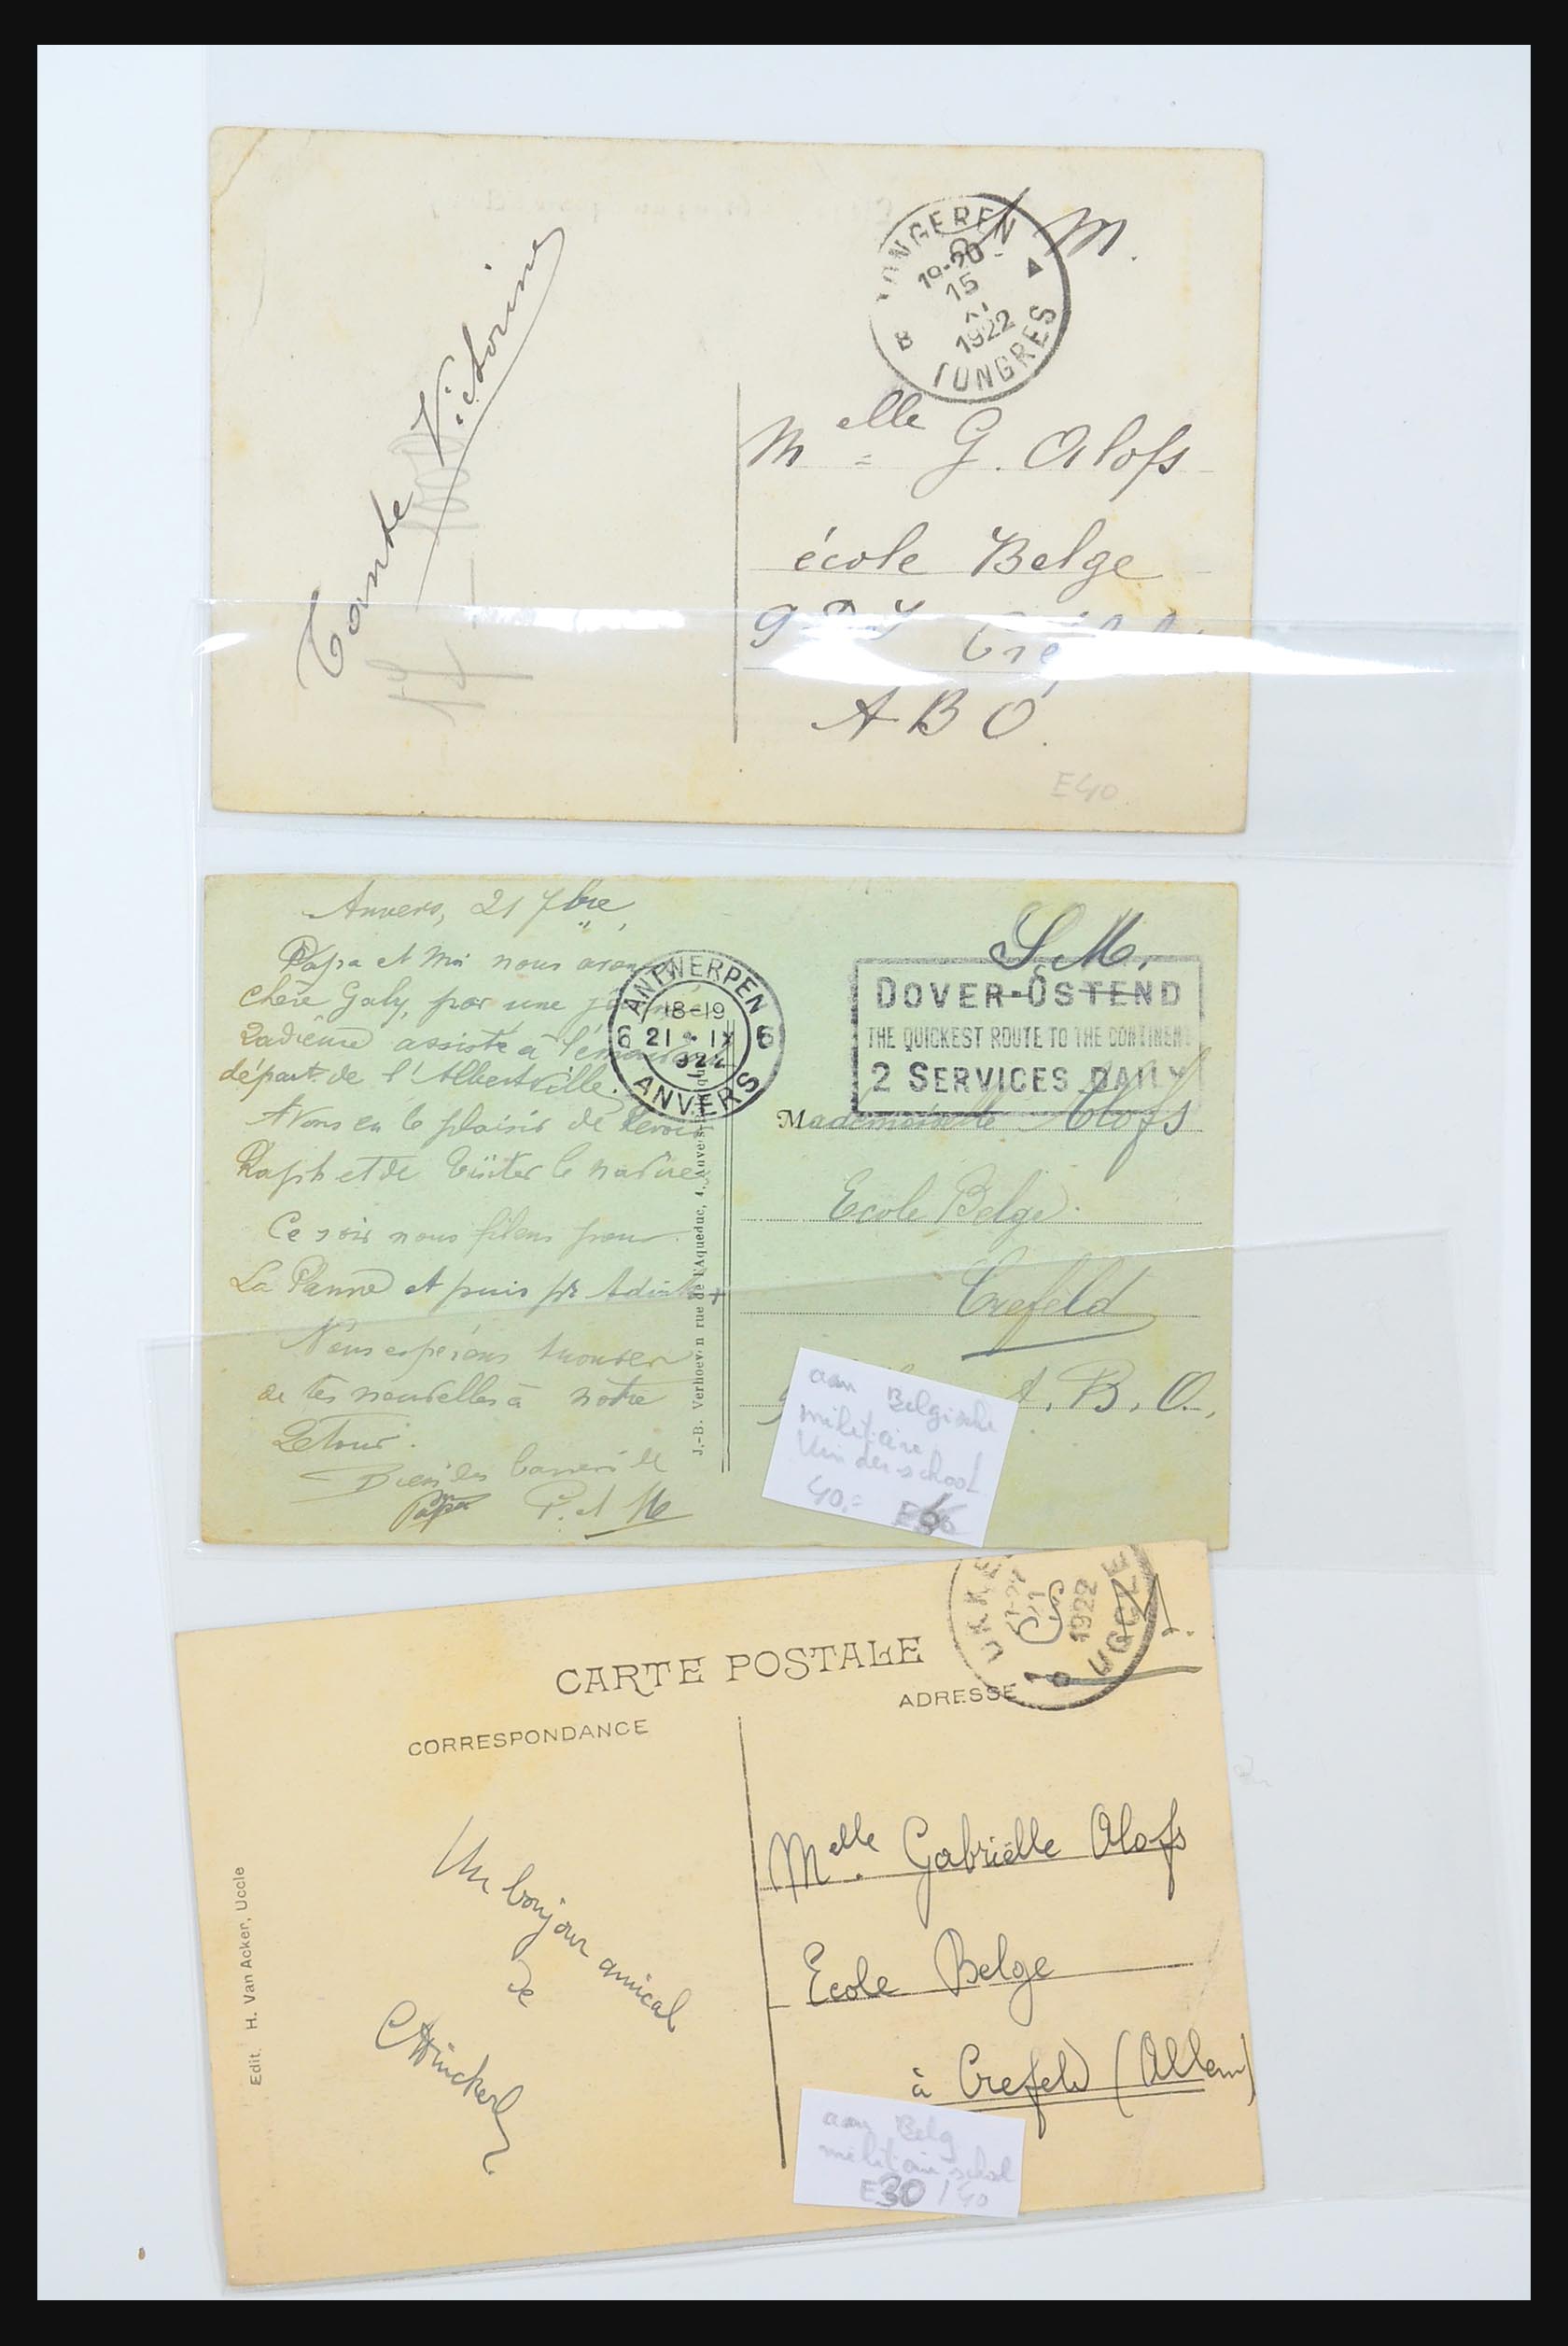 TONGEREN
19-20
15
1922
B
TONGRES
M.
Tante Victorine
Melle G. Olofs
école Belge
A B O.
E40
Anvers, 21 7bre,
Papa et Moi nous avons
chère Gaby, par une
assisté à
départ de l'Albertville.
Avons eu le plaisir de revoir
Raph et de visiter le navire
Ce soir nous filons pour
La Panne et puis pr
Nous espérons trouver
de tes nouvelles à notre
retour.
Papa P. et M
ANTWERPEN
18-19
6 21 IX 6
922
ANVERS
S.M.
DOVER-OSTEND
THE QUICKEST ROUTE TO THE CONTINENT
2 SERVICES DAILY
Mademoiselle Olofs
Ecole Belge
Crefeld
A. B. O.
J.-B. Verhoeven rue de l'Aqueduc, 4, Anvers
aan Belgische
militaire
kinderschool
40.= E
UKKEL
1922
UCCLE
S. M.
CARTE POSTALE
CORRESPONDANCE
ADRESSE
Un bonjour amical
de
Melle Gabriëlle Olofs
Ecole Belge
à Crefeld (Allem)
Edit. H. Van Acker, Uccle
aan Belg
militair school
E30 / 40